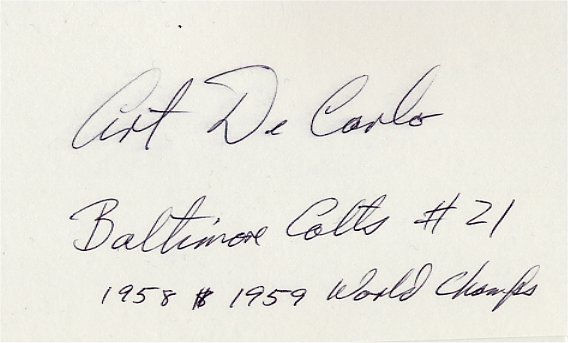 Art De Carlo
Baltimore Colts #21
1958 & 1959 World Champs